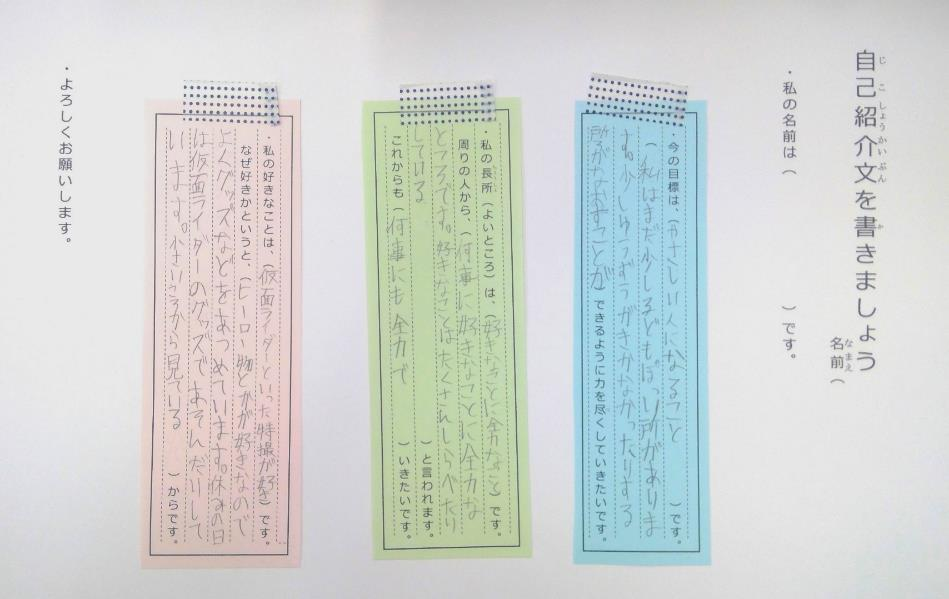 自己紹介文を書きましょう
じこしょうかいぶん か
名前(
なまえ
・私の名前は( )です。
・今の目標は、(やさしい人になること )です。
(私はまだ少しこどもっぽい所がありま
す。少ししゅうちゅうがきかなかったりする
所がなおすことが)できるように力を尽くしていきたいです。
・私の長所(よいところ)は、(好きなことに全力なこと)です。
周りの人から、(何事に好きなことに全力な
ところです。好きなことはたくさんしらべたり
している )と言われます。
これからも(何事にも全力で )いきたいです。
私の好きなことは、(仮面ライダーといった特撮が好き)です。
なぜ好きかというと、(ヒーロー物とかが好きなので
よくグッズなどをあつめています。休みの日
は仮面ライダーのグッズであそんだりして
います。小さいころから見ている )からです。
・よろしくお願いします。